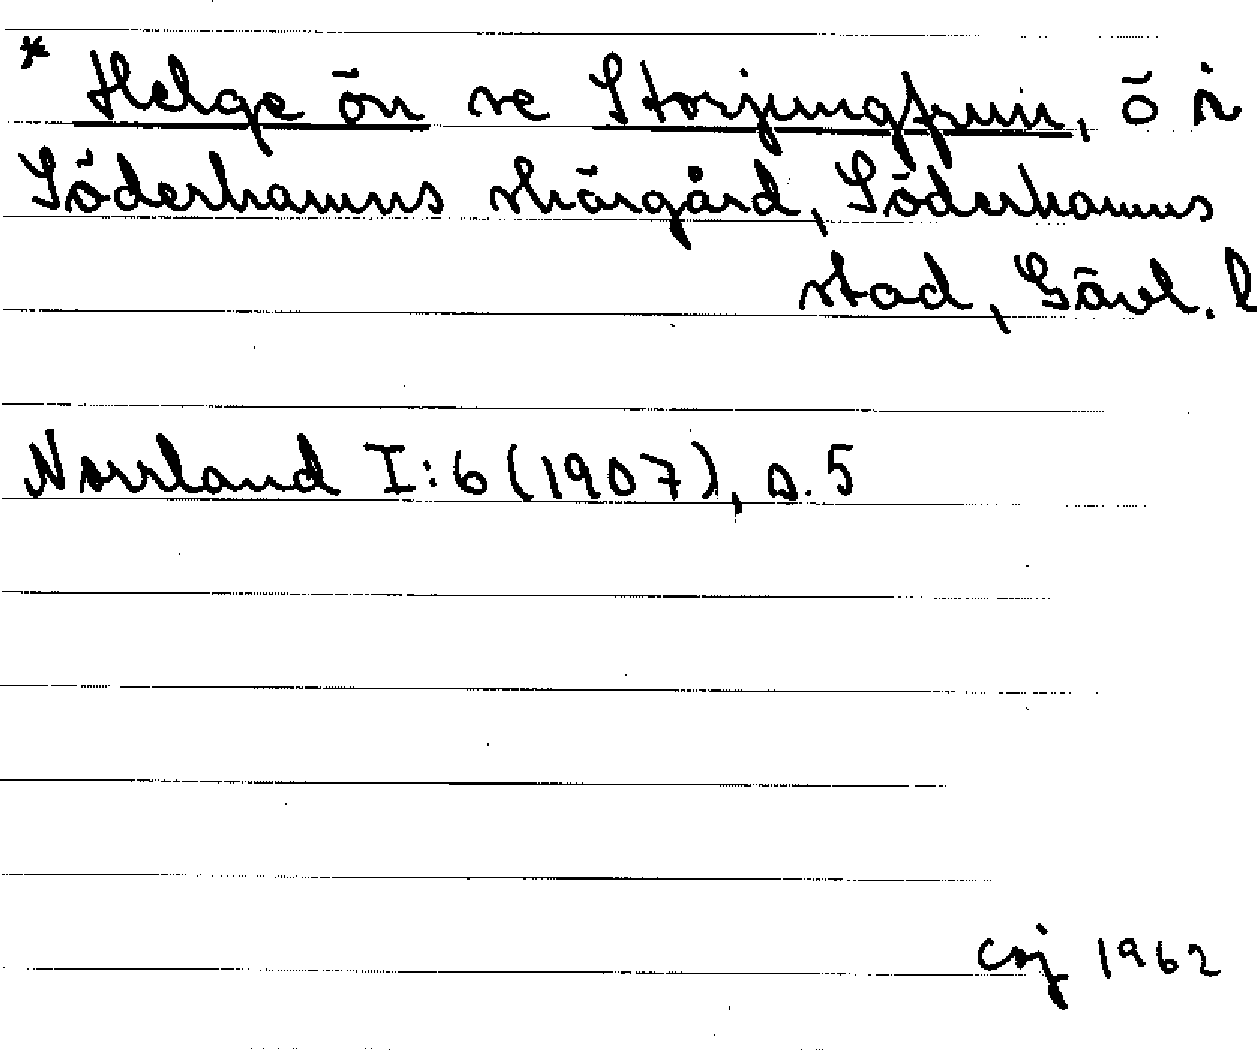 * Helge ön se Storjungfrun, ö i
Söderhamns skärgård, Söderhamns
stad, Gävl. l
Norrland I:6 (1907), s. 5
csj 1962